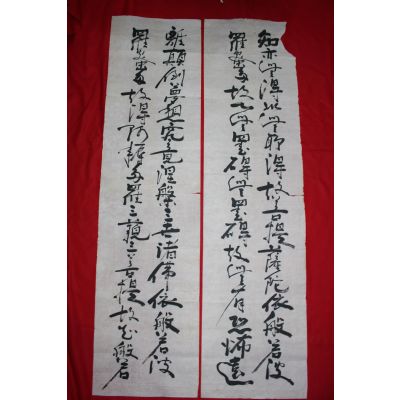 智亦無得以無所得故菩提薩陀依般若波
羅蜜多故心無罣碍無罣碍故無有恐怖遠
離顚倒夢想究竟涅槃三世諸佛依般若波
羅蜜多故得阿耨多羅三藐三菩提故知般若